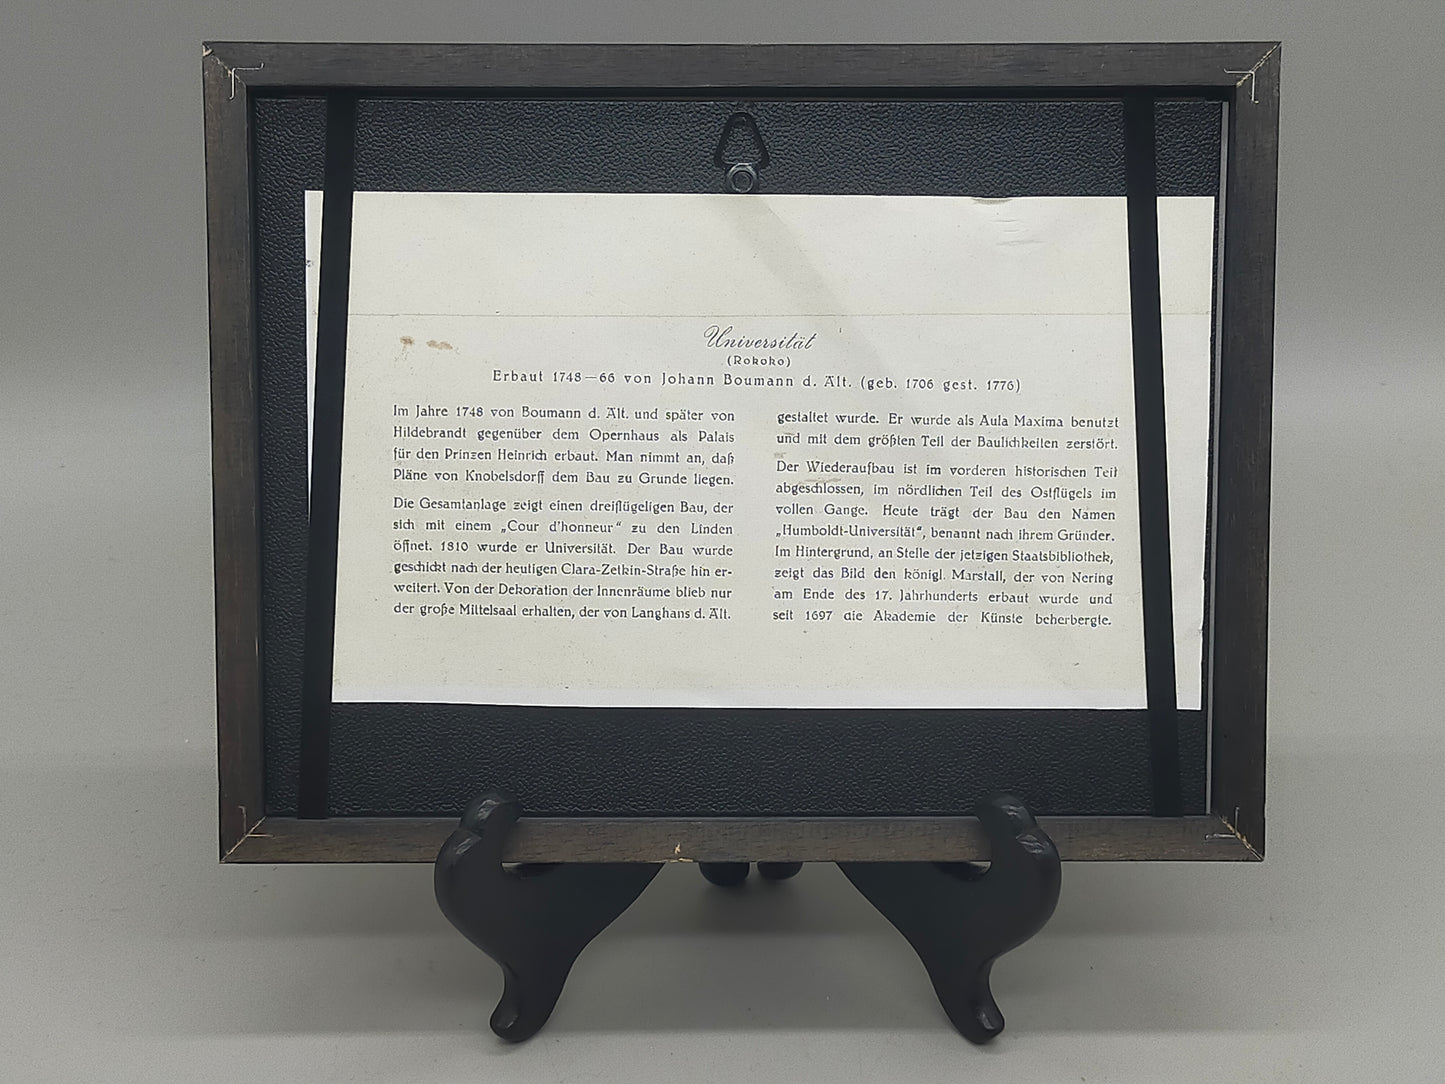 Universität
(Rokoko)
Erbaut 1748—66 von Johann Boumann d. Ält. (geb. 1706 gest. 1776)
Im Jahre 1748 von Boumann d. Ält. und später von
Hildebrandt gegenüber dem Opernhaus als Palais
für den Prinzen Heinrich erbaut. Man nimmt an, daß
Pläne von Knobelsdorff dem Bau zu Grunde liegen.
Die Gesamtanlage zeigt einen dreiflügeligen Bau, der
sich mit einem „Cour d'honneur“ zu den Linden
öffnet. 1810 wurde er Universität. Der Bau wurde
geschickt nach der heutigen Clara-Zetkin-Straße hin er-
weitert. Von der Dekoration der Innenräume blieb nur
der große Mittelsaal erhalten, der von Langhans d. Ält.
gestaltet wurde. Er wurde als Aula Maxima benutzt
und mit dem größten Teil der Baulichkeiten zerstört.
Der Wiederaufbau ist im vorderen historischen Teil
abgeschlossen, im nördlichen Teil des Ostflügels im
vollen Gange. Heute trägt der Bau den Namen
„Humboldt-Universität“, benannt nach ihrem Gründer.
Im Hintergrund, an Stelle der jetzigen Staatsbibliothek,
zeigt das Bild den königl. Marstall, der von Nering
am Ende des 17. Jahrhunderts erbaut wurde und
seit 1697 die Akademie der Künste beherbergte.